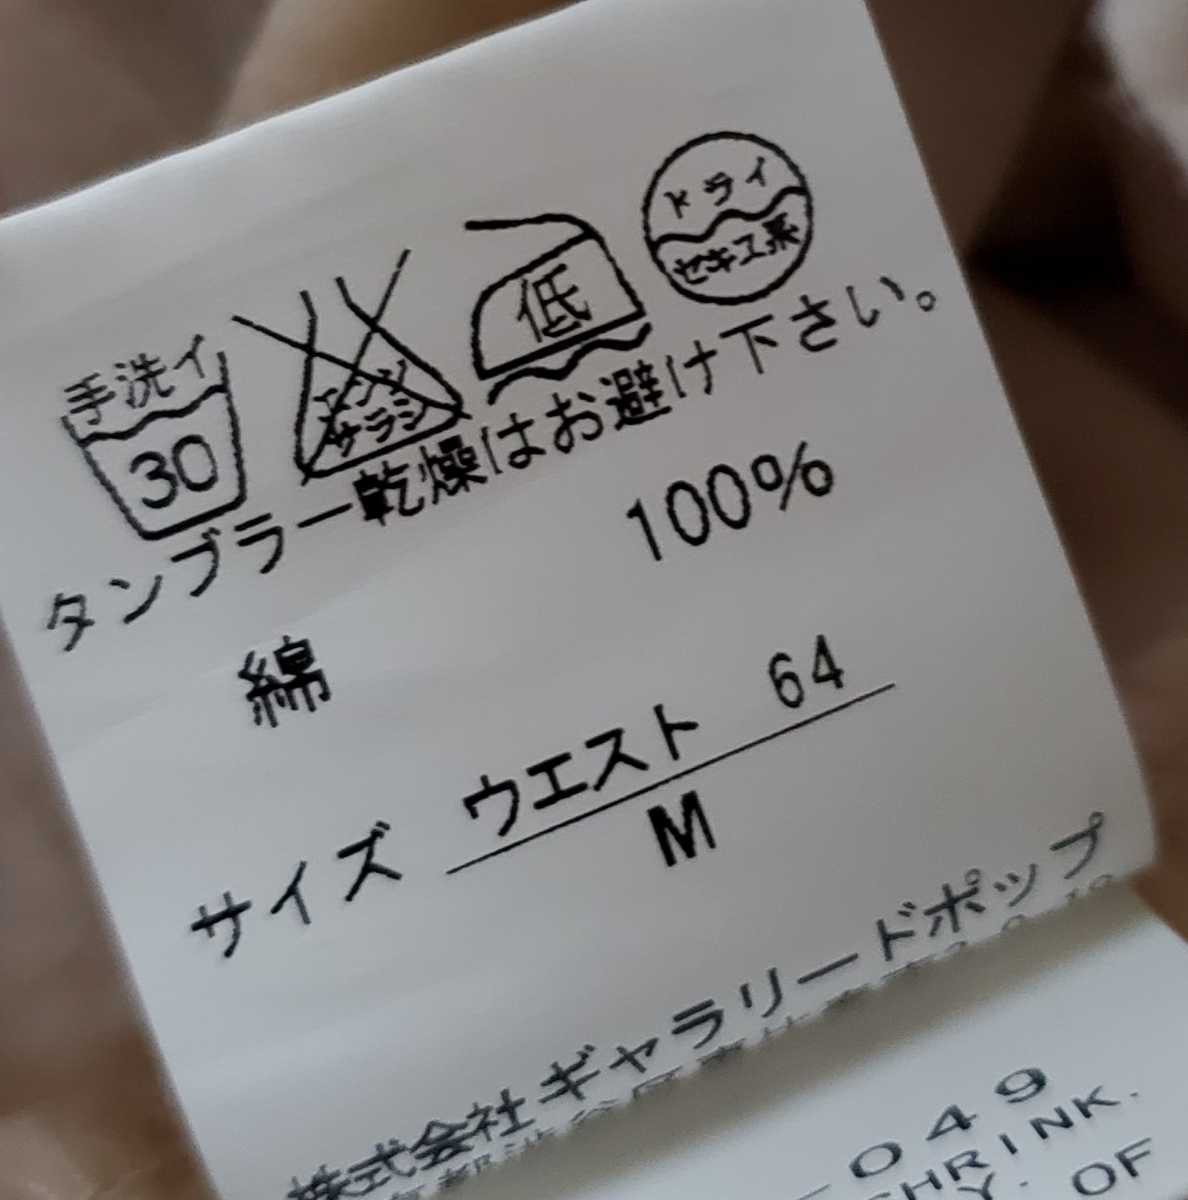 手洗イ
30
エンソ
サラシ
低
ドライ
セキユ系
タンブラー乾燥はお避け下さい。
綿 100%
サイズ ウエスト 64
M
株式会社ギャラリードポップ
049
SHRINK.
Y. OF